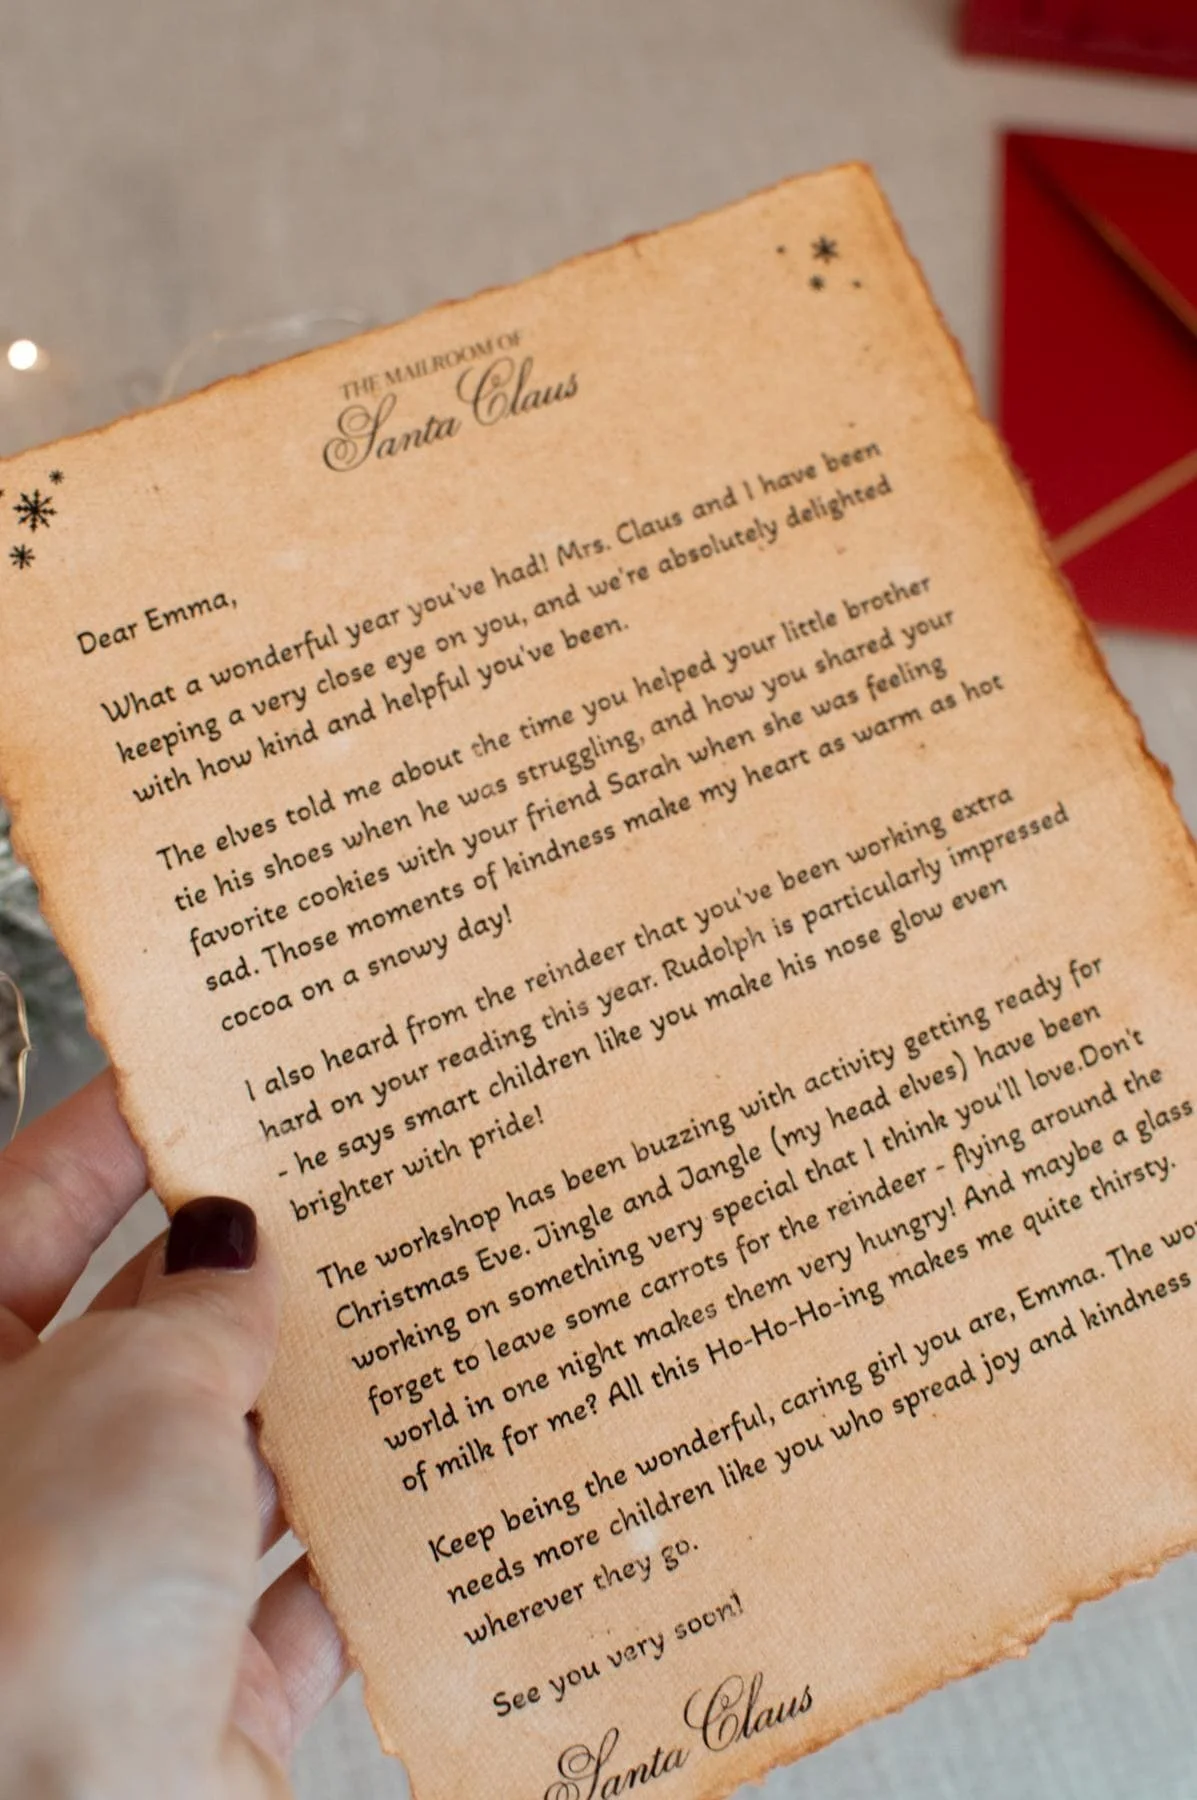 THE MAILROOM OF
Santa Claus
Dear Emma,
What a wonderful year you've had! Mrs. Claus and I have been
keeping a very close eye on you, and we're absolutely delighted
with how kind and helpful you've been.
The elves told me about the time you helped your little brother
tie his shoes when he was struggling, and how you shared your
favorite cookies with your friend Sarah when she was feeling
sad. Those moments of kindness make my heart as warm as hot
cocoa on a snowy day!
I also heard from the reindeer that you've been working extra
hard on your reading this year. Rudolph is particularly impressed
- he says smart children like you make his nose glow even
brighter with pride!
The workshop has been buzzing with activity getting ready for
Christmas Eve. Jingle and Jangle (my head elves) have been
working on something very special that I think you'll love.Don't
forget to leave some carrots for the reindeer - flying around the
world in one night makes them very hungry! And maybe a glass
of milk for me? All this Ho-Ho-Ho-ing makes me quite thirsty.
Keep being the wonderful, caring girl you are, Emma. The
needs more children like you who spread joy and kindness
wherever they go.
See you very soon!
Santa Claus